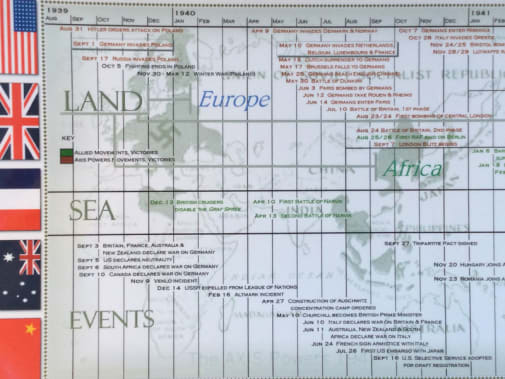 1939
1940
1941
Aug Sep Oct Nov Dec Jan Feb Mar Apr May Jun Jul Aug Sep Oct Nov Dec Jan Feb
Aug 31 Hitler orders attack on Poland
Apr 9 Germany invades Denmark & Norway
Oct 7 Germans enter Romania
Sept 1 Germany invades Poland
May 10 Germany invades Netherlands,
Belgium, Luxembourg & France
Oct 28 Italy invades Greece
Nov 24/25 Bristol
Sept 17 Russia invades Poland
May 15 Dutch surrender to Germany
Nov 28/29
Oct 5 Fighting ends in Poland
May 17 Brussels falls to Germany
Nov 30 - Mar 12 Winter War
May 25
May 30 Battle of Dunkirk
Jun 3 Paris bombed by Germans
Jun 12 Germans take Rouen & Rheims
Jun 14 Germans enter Paris
Jul 10 Battle of Britain, 1st phase
Aug 23/24 First bombing of central London
Aug 24 Battle of Britain, 2nd phase
Aug 25/26 First RAF raid on Berlin
Sept 7 London Blitz begins
LAND
Europe
KEY
Allied Movements, Victories
Axis Powers Movements, Victories
Africa
Jan 5
Jan
SEA
Dec 13 British cruisers
disable the Graf Spree
Apr 10 First Battle of Narvik
Apr 13 Second Battle of Narvik
EVENTS
Sept 3 Britain, France, Australia &
New Zealand declare war on Germany
Sept 5 US declares neutrality
Sept 6 South Africa declares war on Germany
Sept 10 Canada declares war on Germany
Nov 9 Venlo incident
Dec 14 USSR expelled from League of Nations
Feb 16 Altmark incident
Apr 27 Construction of Auschwitz
concentration camp ordered
May 10 Churchill becomes British Prime Minister
Jun 10 Italy declares war on Britain & France
Jun 11 Australia, New Zealand & South
Africa declare war on Italy
Jun 24 French sign armistice with Italy
Jul 26 First US embargo with Japan
Sept 16 U.S. Selective Service adopted
for draft registration
Sept 27 Tripartite Pact signed
Nov 20 Hungary joins
Nov 23 Romania joins